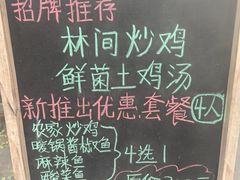 招牌推荐
林间炒鸡
鲜菌土鸡汤
新推出优惠套餐4人
农家炒鸡
暖锅酱椒鱼
麻辣鱼
酸菜鱼
4选1